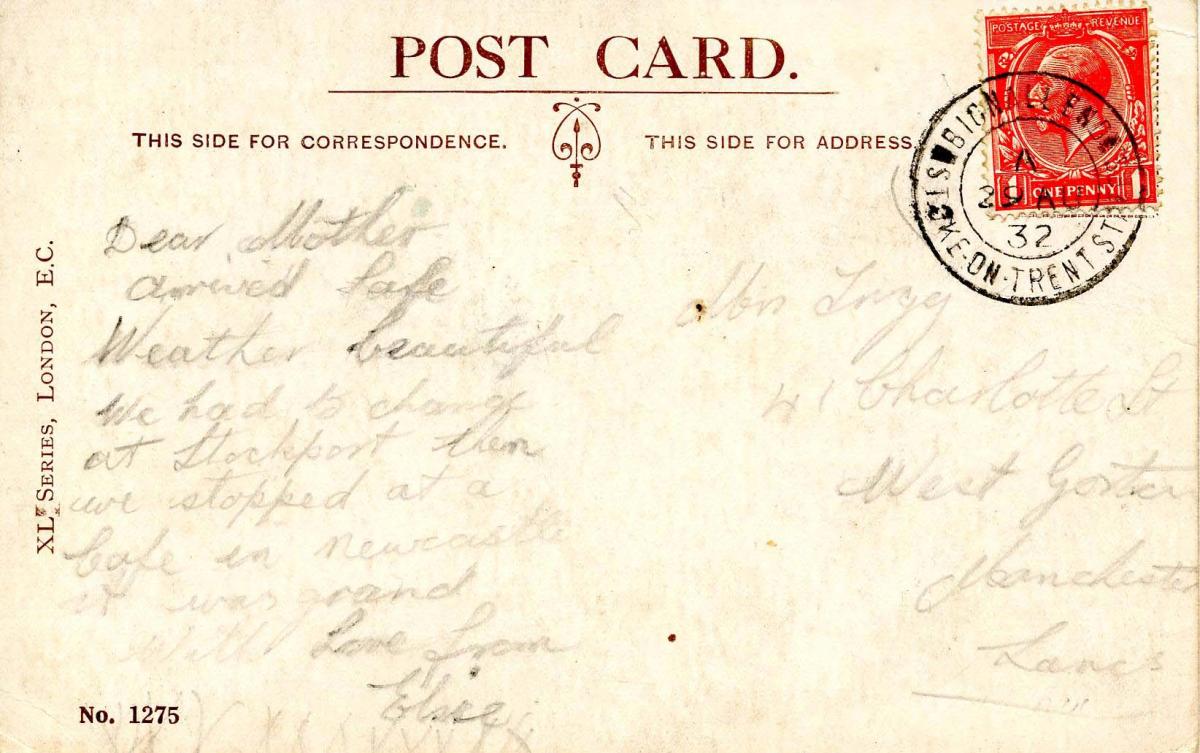 POST CARD.
THIS SIDE FOR CORRESPONDENCE.
THIS SIDE FOR ADDRESS.
POSTAGE REVENUE
ONE PENNY
BIGNALL END
A
29 AU
32
STOKE-ON-TRENT ST
XL SERIES, LONDON, E.C.
Dear Mother
arrived safe
Weather beautiful
We had to change
at Stockport then
we stopped at a
Cafe in Newcastle
it was grand
Will Love from
Elsie
Mrs
41 Charlotte St
West Gorton
Manchester
Lancs
No. 1275